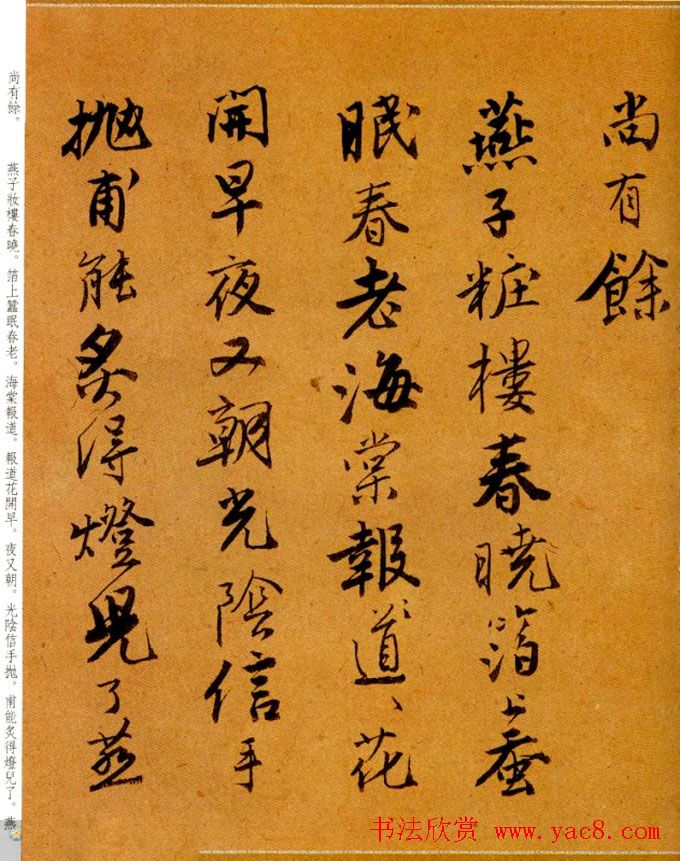 尚有餘
燕子粧樓春曉箔上蚕
眠春老海棠報道〻花
開早夜又朝光陰信手
抛甫能炙得燈兒了燕
尚有餘。　燕子妝樓春曉。箔上蠶眠春老。海棠報道。報道花開早。夜又朝。光陰信手抛。甫能炙得燈兒了。燕
书法欣赏 www.yac8.com